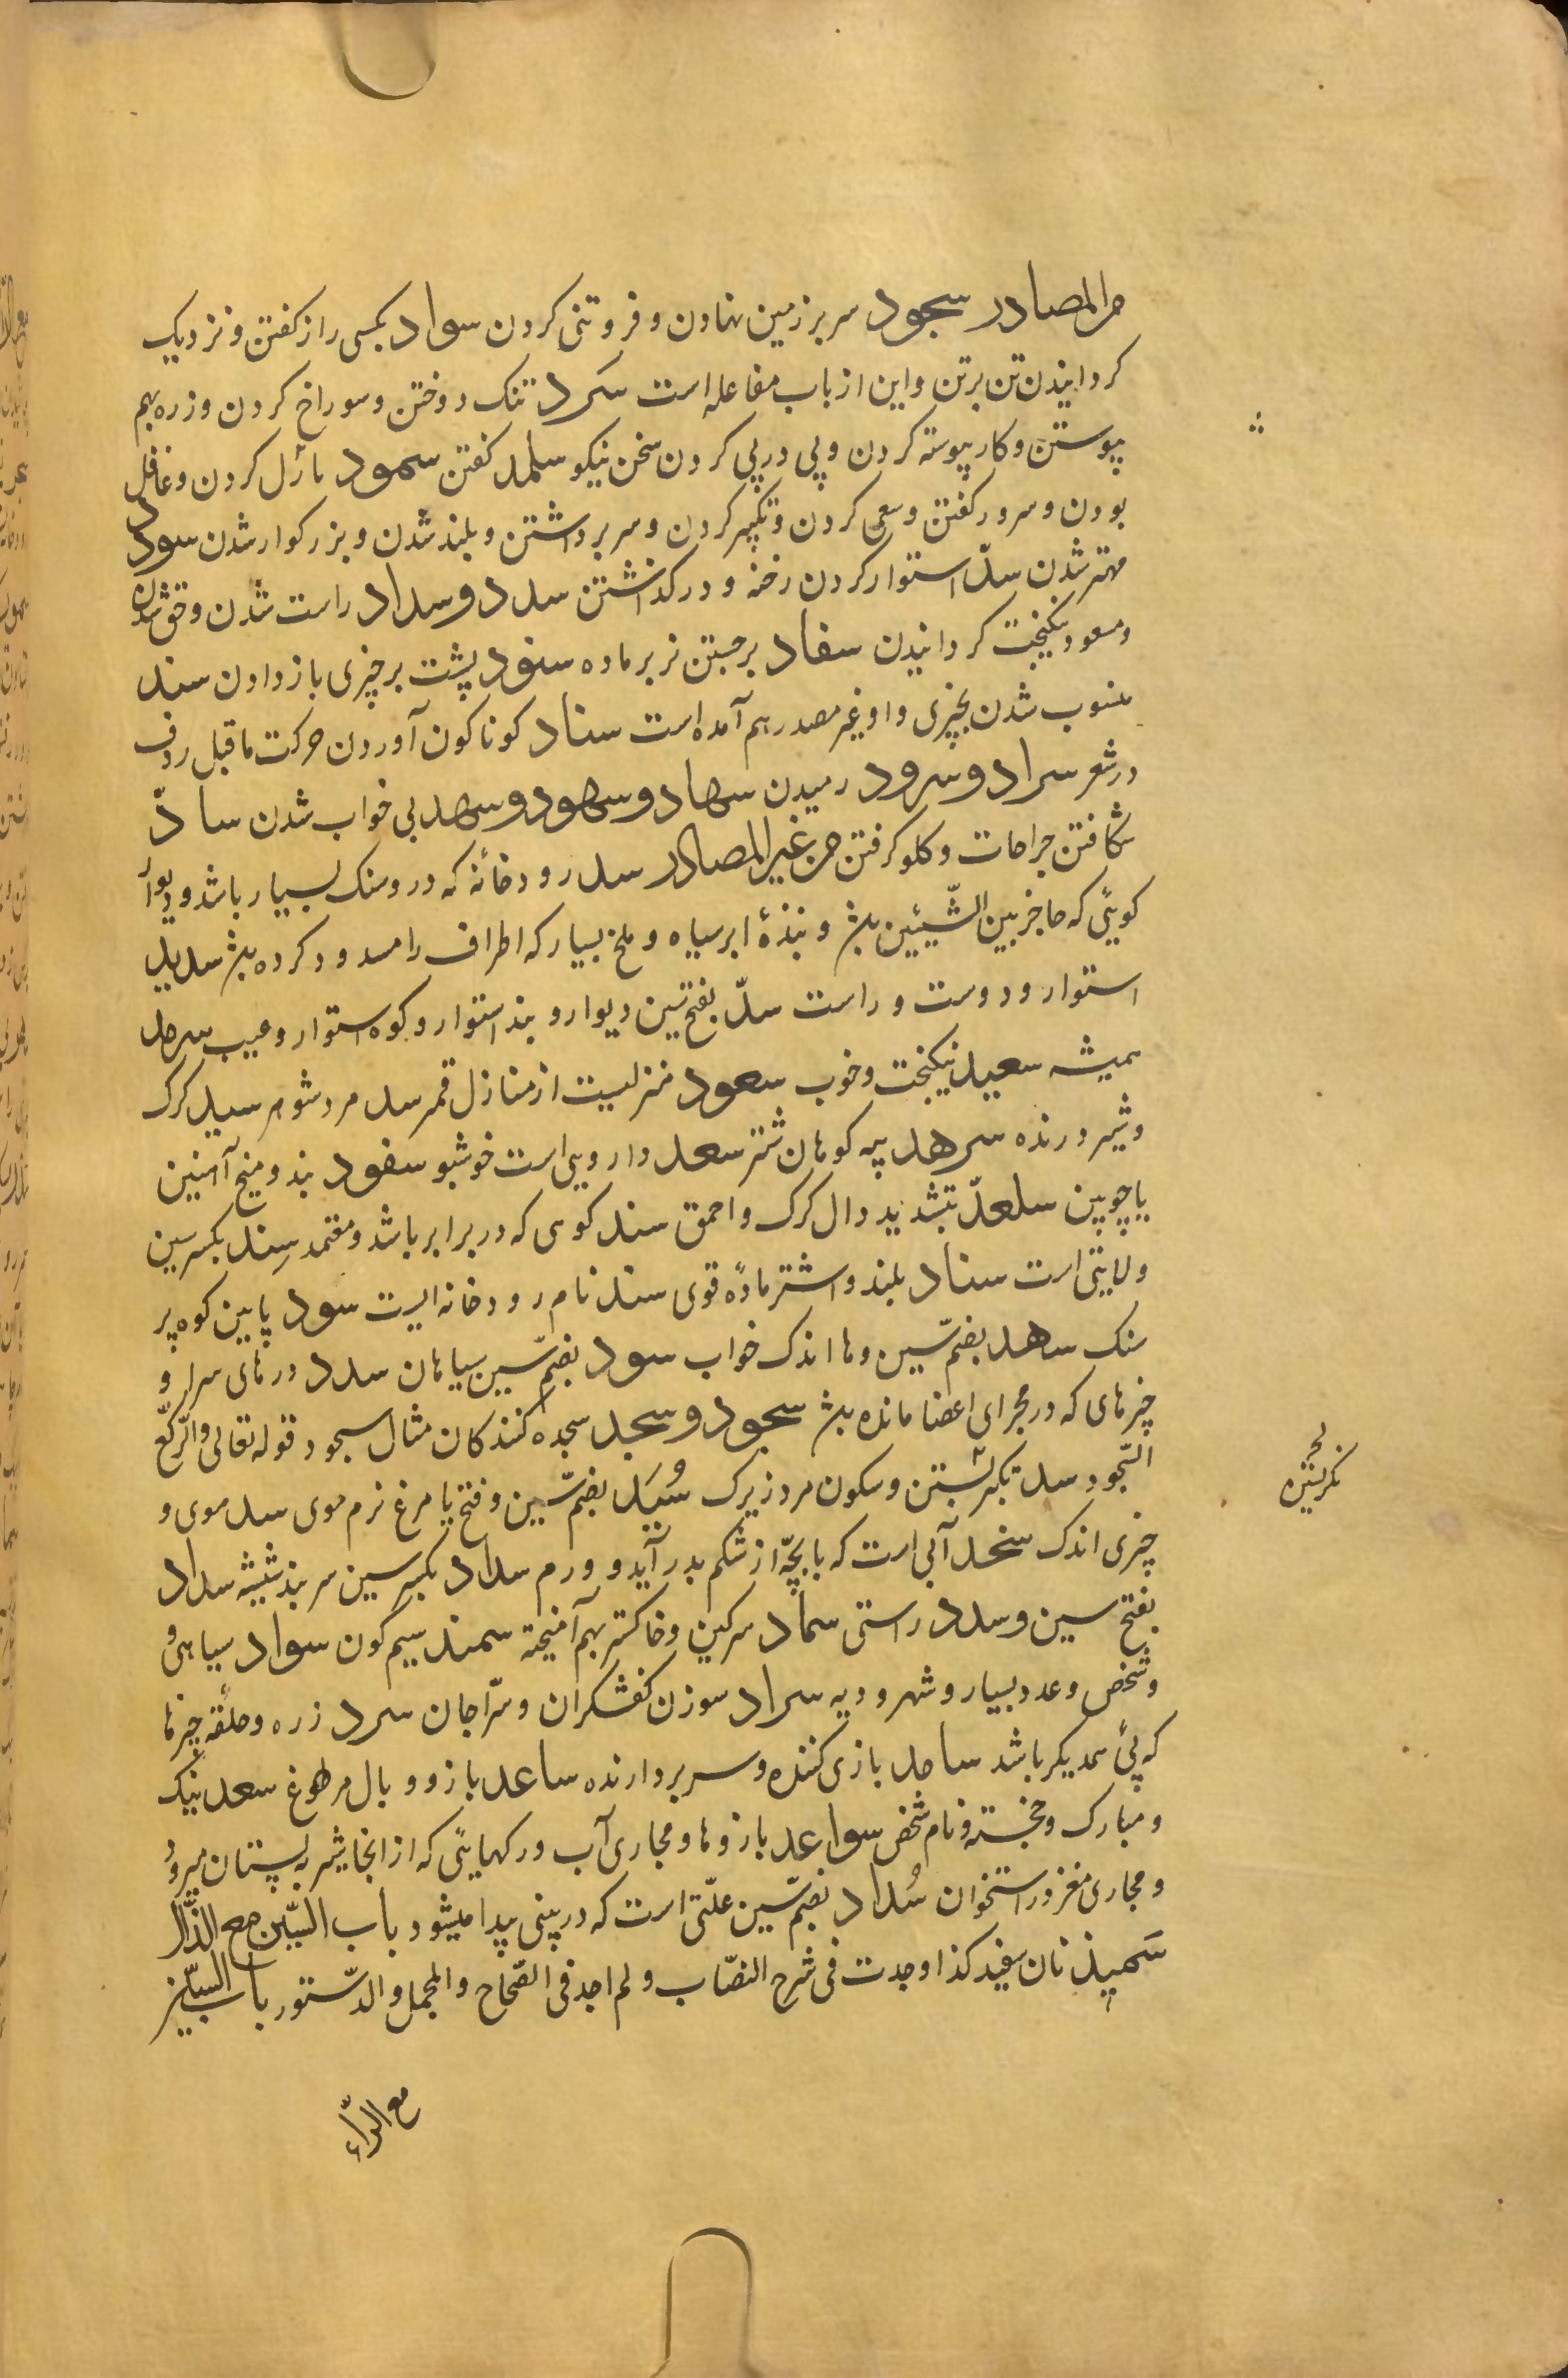 من المصادر سجود سر بر زمین نهادن و فروتنی کردن سواد بکسی راز کفتن و نزدیک
کردانیدن تن برتن و این از باب مفاعله است سَرد تنک دوختن و سوراخ کردن و زره بهم
پیوستن و کار پیوسته کردن و پی در پی کردن سخن نیکو سلمد کفتن سمود مازل کردن و غافل
بودن و سرور کفتن و سعی کردن و تکبر کردن و سر برداشتن و بلند شدن و بزرکوار شدن سود
مهتر شدن سدّ استوار کردن رخنه و درکذاشتن سدد و سداد راست شدن و حق شدن
و مسعود نیکبخت کردانیدن سفاد برجستن نر بر ماده سنود پشت بر چیزی باز دادن سند
منسوب شدن بچیزی و او غیر مصدر هم آمده است سناد کوناکون آوردن حرکت ماقبل ردف
در شعر سراد و سرود رمیدن سهاد و سهود و سهد بی خواب شدن ساد
شکافتن جراحات و کلو کرفتن من غیر المصادر سد رودخانهٔ که درو سنک بسیار باشد و دیوار
کویی که حاجز بین الشّیئین بش و بندهٔ ابر سیاه و ملخ بسیار که اطراف را مسدود کرده بش سدید
استوار و دوست و راست سدّ بفتح سین دیوار و بند استوار و کوه استوار و عیب سرمد
همیشه سعید نیکبخت و خوب سعود منزلیست از منازل قمر سد مرد شوم سید کرک
و شیر درنده سرهد پیه کوهان شتر سعد دارویی است خوشبو سفود بند و میخ آهنین
یا چوبین سلعدّ بتشدید دال کرک و احمق سند کوهی که در برابر باشد و معتمد سِند بکسر سین
ولایتی است سناد بلند و اشتر مادهٔ قوی سند نام رودخانه ایست سود پایین کوه پر
سنک سهد بضمّ سین و ها اندک خواب سود بضمّ سین سیاهان سدد درهای سرا و
چیزهای که در مجرای اعضا مانده بش سجود و سجد سجده کنندکان مثال سجود قوله تعالی والرّکّع
السّجود سد بکسر سین و سکون مرد زیرک سُبَد بضمّ سین و فتح با مرغ نرم موی سبد موی و
چیزی اندک سخد آبی است که با بچّه از شکم بدر آید و ورم سداد بکسر سین سربند شیشه سداد
بفتح سین و سدد راستی سماد سرکین و خاکستر بهم آمیخته سمند سیم کون سواد سیاهی
و شخص و عدد بسیار و شهر و دیه سراد سوزن کفشکران و سرّاجان سرد زره و حلقهٔ چیزها
که پئ همدیکر باشد سامد بازی کننده و سر بردارنده ساعد بازو و بال مرغ سعد نیک
و مبارک و خجسته و نام شخص سواعد بازوها و مجاری آب و رکهایی که از انجا شیر به پستان میرود
و مجاری مغز در استخوان سُداد بضمّ سین علّتی است که در بینی پیدا میشود باب السّین مع الذّال
سَمیذ نان سفید کذا وجدت فی شرح النصّاب و لم اجد فی الصّحاح و المجمل و الدّستور باب السّین
مع الرّاء